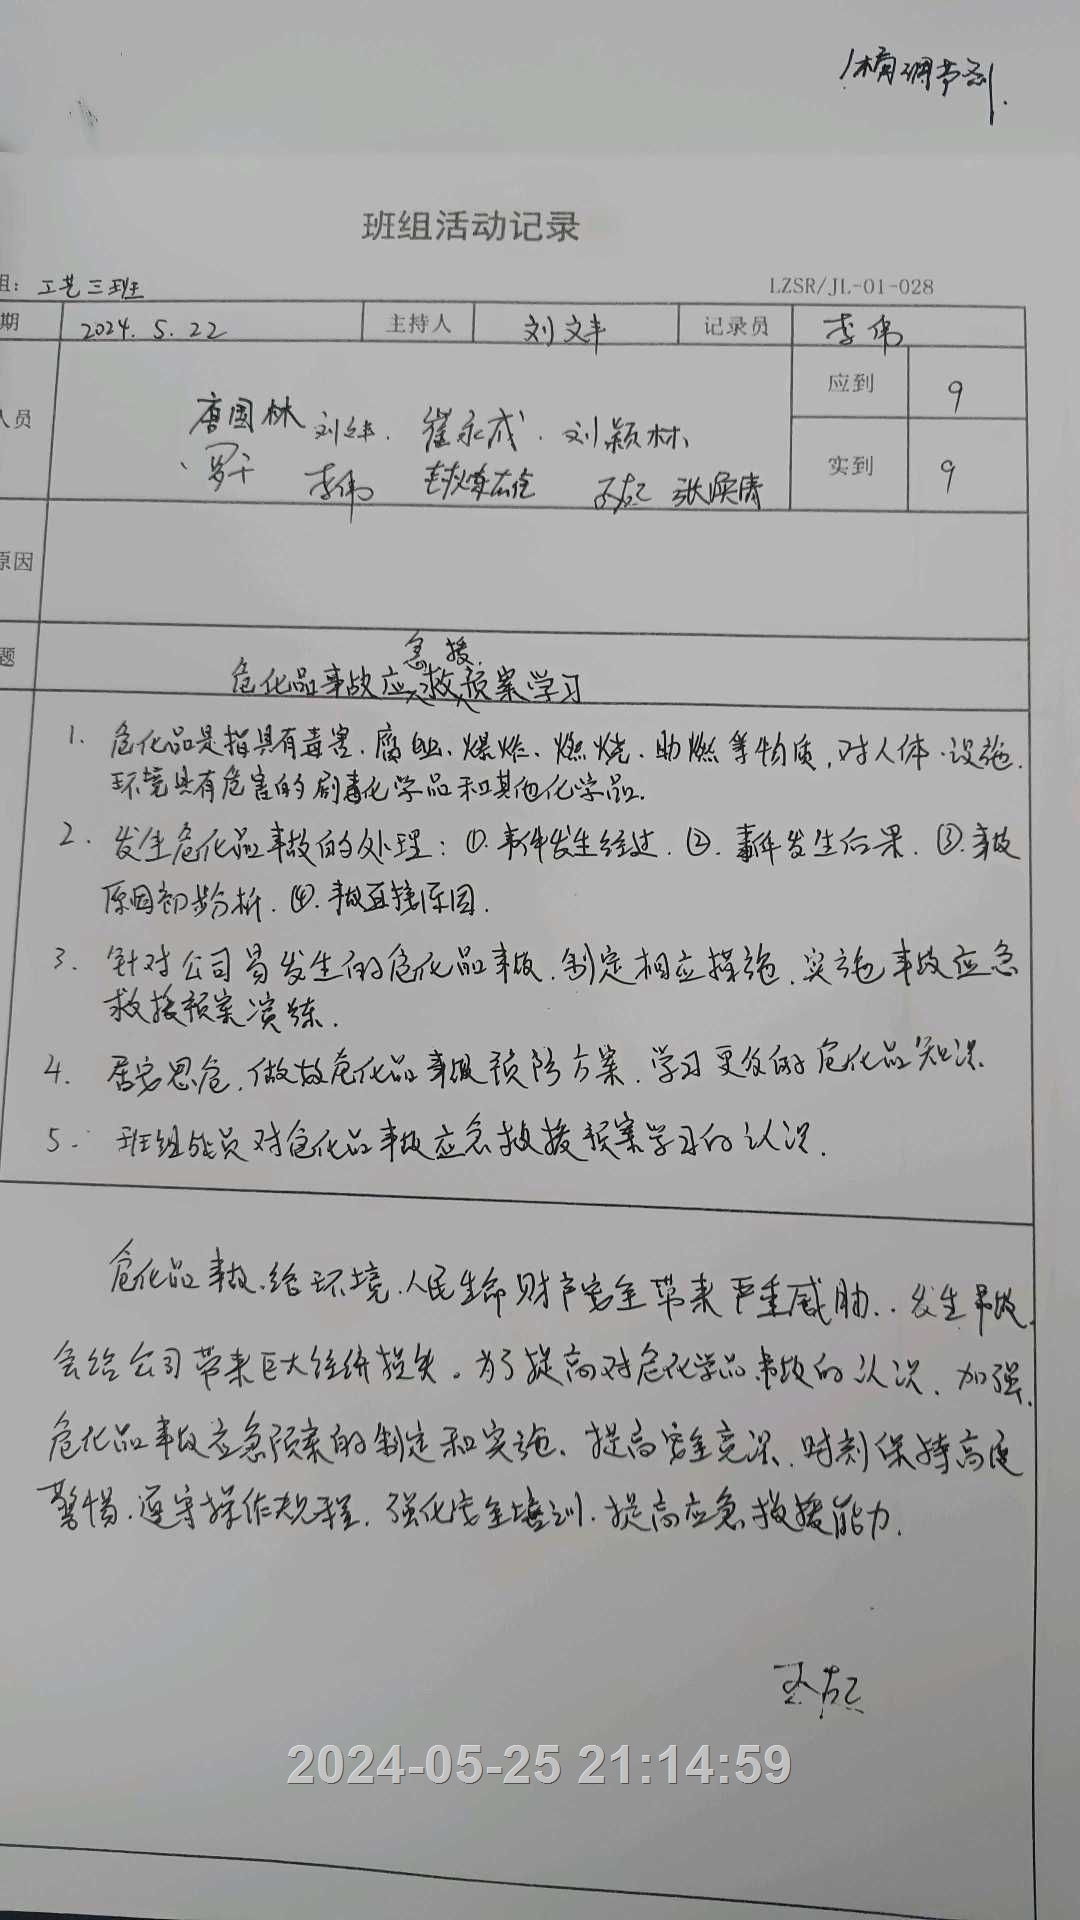 班组活动记录
组：工艺三班 LZSR/JL-01-028
期 2024.5.22 主持人 刘文丰 记录员 李伟
应到 9
人员
唐国林 刘文丰. 崔永成. 刘颖林
罗干 李伟
实到 9
原因
急 援
题 危化品事故应救预案学习
1. 危化品是指具有毒害、腐蚀、爆炸、燃烧、助燃等物质,对人体、设施、
环境具有危害的剧毒化学品和其他化学品.
2. 发生危化品事故的处理：①.事件发生经过.②.事件发生后果.③.事故
原因初步分析.④.事故直接原因.
3. 针对公司易发生的危化品事故,制定相应措施,实施事故应急
救援预案演练.
4. 居安思危,做好危化品事故预防方案,学习更多的危化品知识.
5. 班组成员对危化品事故应急救援预案学习的认识.
危化品事故.给环境.人民生命财产安全带来严重威胁..发生事故,
会给公司带来巨大经济损失。为了提高对危化学品事故的认识、加强
危化品事故应急预案的制定和实施、提高安全意识,时刻保持高度
警惕.遵守操作规程,强化安全培训.提高应急救援能力.
2024-05-25 21:14:59